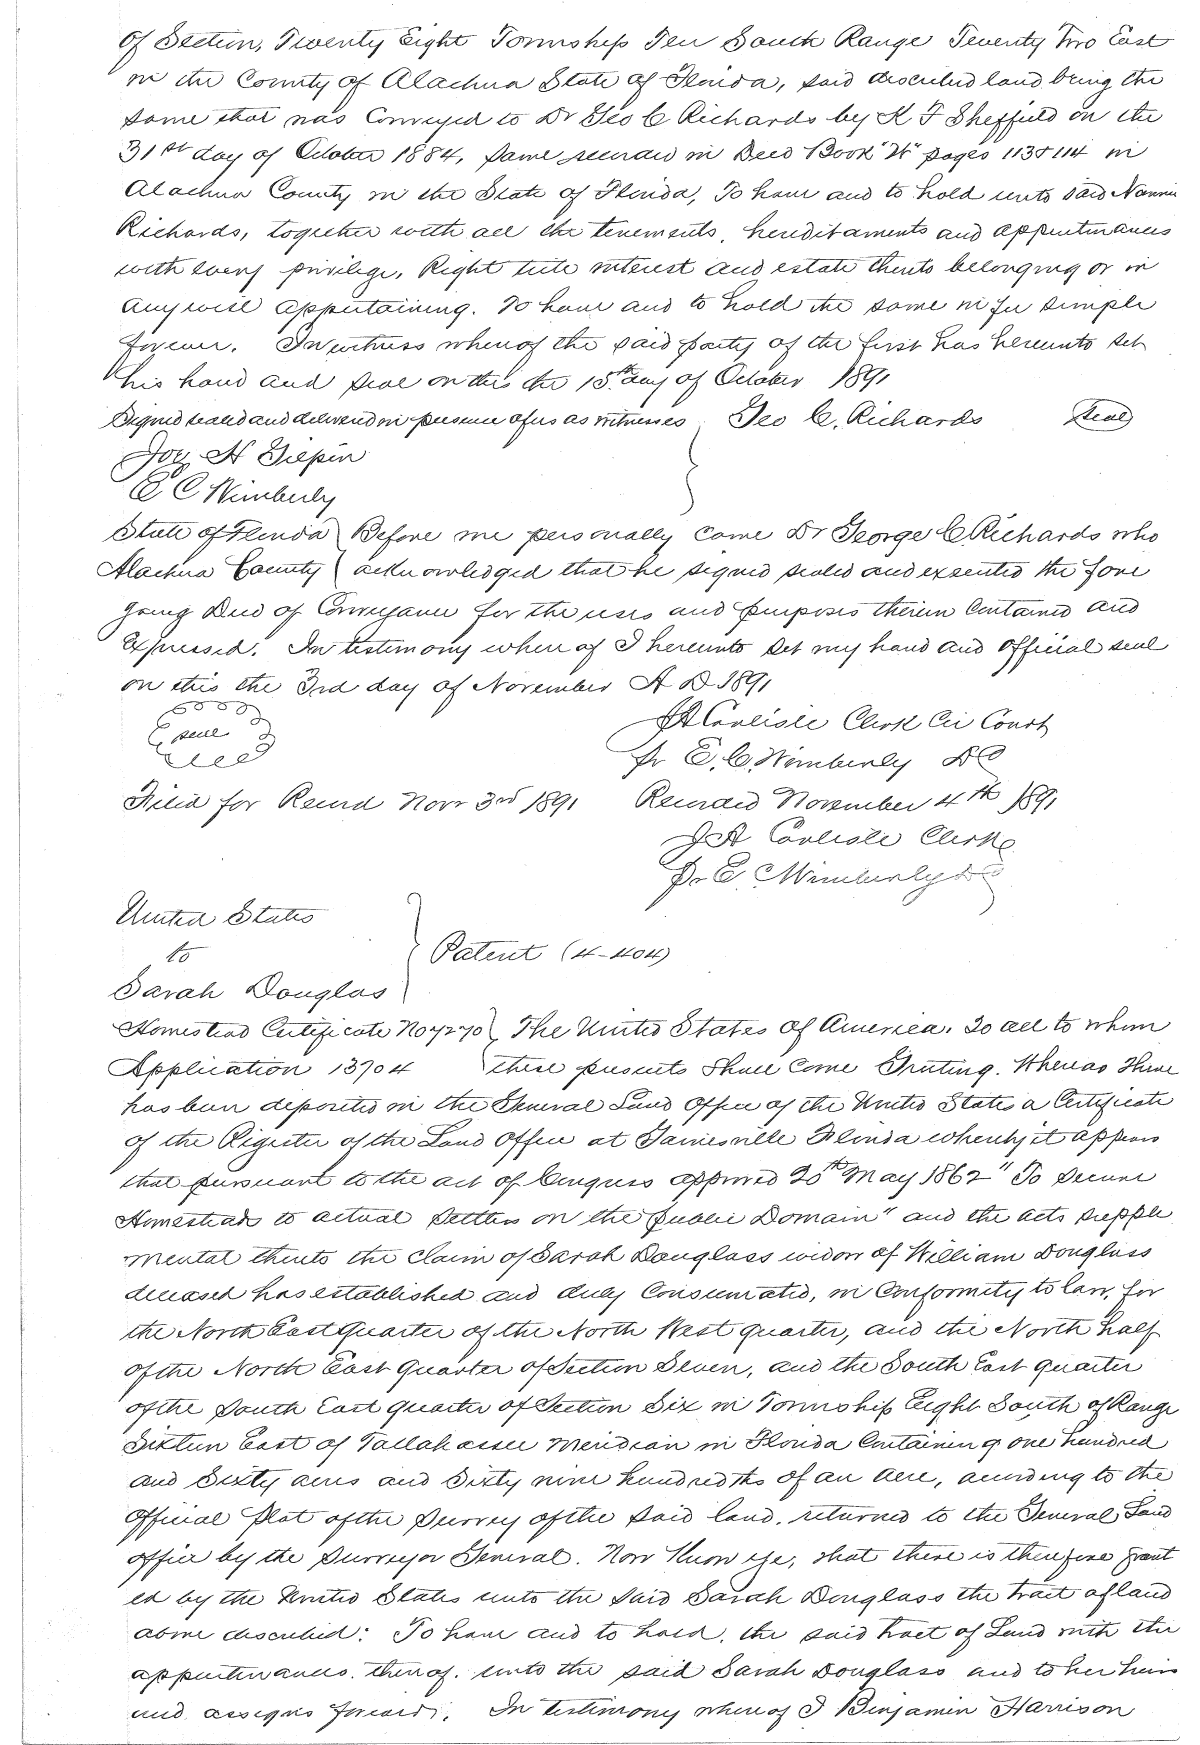 Of Section, Twenty Eight Township Ten South Range Twenty Two East
in the County of Alachua State of Florida, said described land being the
same that was Conveyed to Dr Geo C Richards by K F Sheffield on the
31st day of October 1884, same record in Deed Book "W" pages 113 & 114 in
Alachua County in the State of Florida, To have and to hold unto said Nannie
Richards, together with all the tenements, hereditaments and appurtenances
with every privilege, Right title interest and estate thereto belonging or in
anywise appertaining. To have and to hold the same in fee simple
forever. In witness whereof the said party of the first has hereunto set
his hand and seal on this the 15th day of October 1891
Signed sealed and delivered in presence of us as witnesses Geo C. Richards Seal
Jos. H Giepin
E C Wimberly
State of Florida Before me personally came Dr George C Richards who
Alachua County acknowledged that he signed sealed and executed the fore
going Deed of Conveyance for the uses and purposes therein Contained and
Expressed. In testimony where of I hereunto set my hand and Official seal
on this the 3rd day of November A D 1891
seal
J A Carlisle Clerk Cir Court
Pr E. C. Wimberly DC
Filed for Record Novr 3rd 1891 Recorded November 4th 1891
J A Carlisle Clerk
Pr E. C Wimberly DC
United States
to
Patent (4-404)
Sarah Douglas
Homestead Certificate No 7270 The United States of America. To all to whom
Application 13704 these presents Shall Come Greeting. Whereas There
has been deposited in the General Land Office of the United States a Certificate
of the Register of the Land Office at Gainesville Florida whereby it appears
that pursuant to the act of Congress approved 20th May 1862 "To Secure
Homesteads to actual Settlers on the public Domain" and the acts supple
mental thereto the Claim of Sarah Douglass widow of William Douglass
deceased has established and duly Consumated, in Conformity to law, for
the North East Quarter of the North West quarter, and the North half
of the North East quarter of Section Seven, and the South East quarter
of the South East quarter of Section Six in Township Eight South of Range
Sixteen East of Tallahassee Meridian in Florida Containing one hundred
and Sixty acres and Sixty nine hundredths of an Acre, according to the
Official Plat of the Survey of the said land, returned to the General Land
office by the Surveyor General. Now Know ye, that there is therefore grant
ed by the United States unto the said Sarah Douglass the tract of land
above described: To have and to hold, the said tract of Land with the
appurtenances thereof, unto the said Sarah Douglass and to her heirs
and assigns forever. In testimony where of I Benjamin Harrison